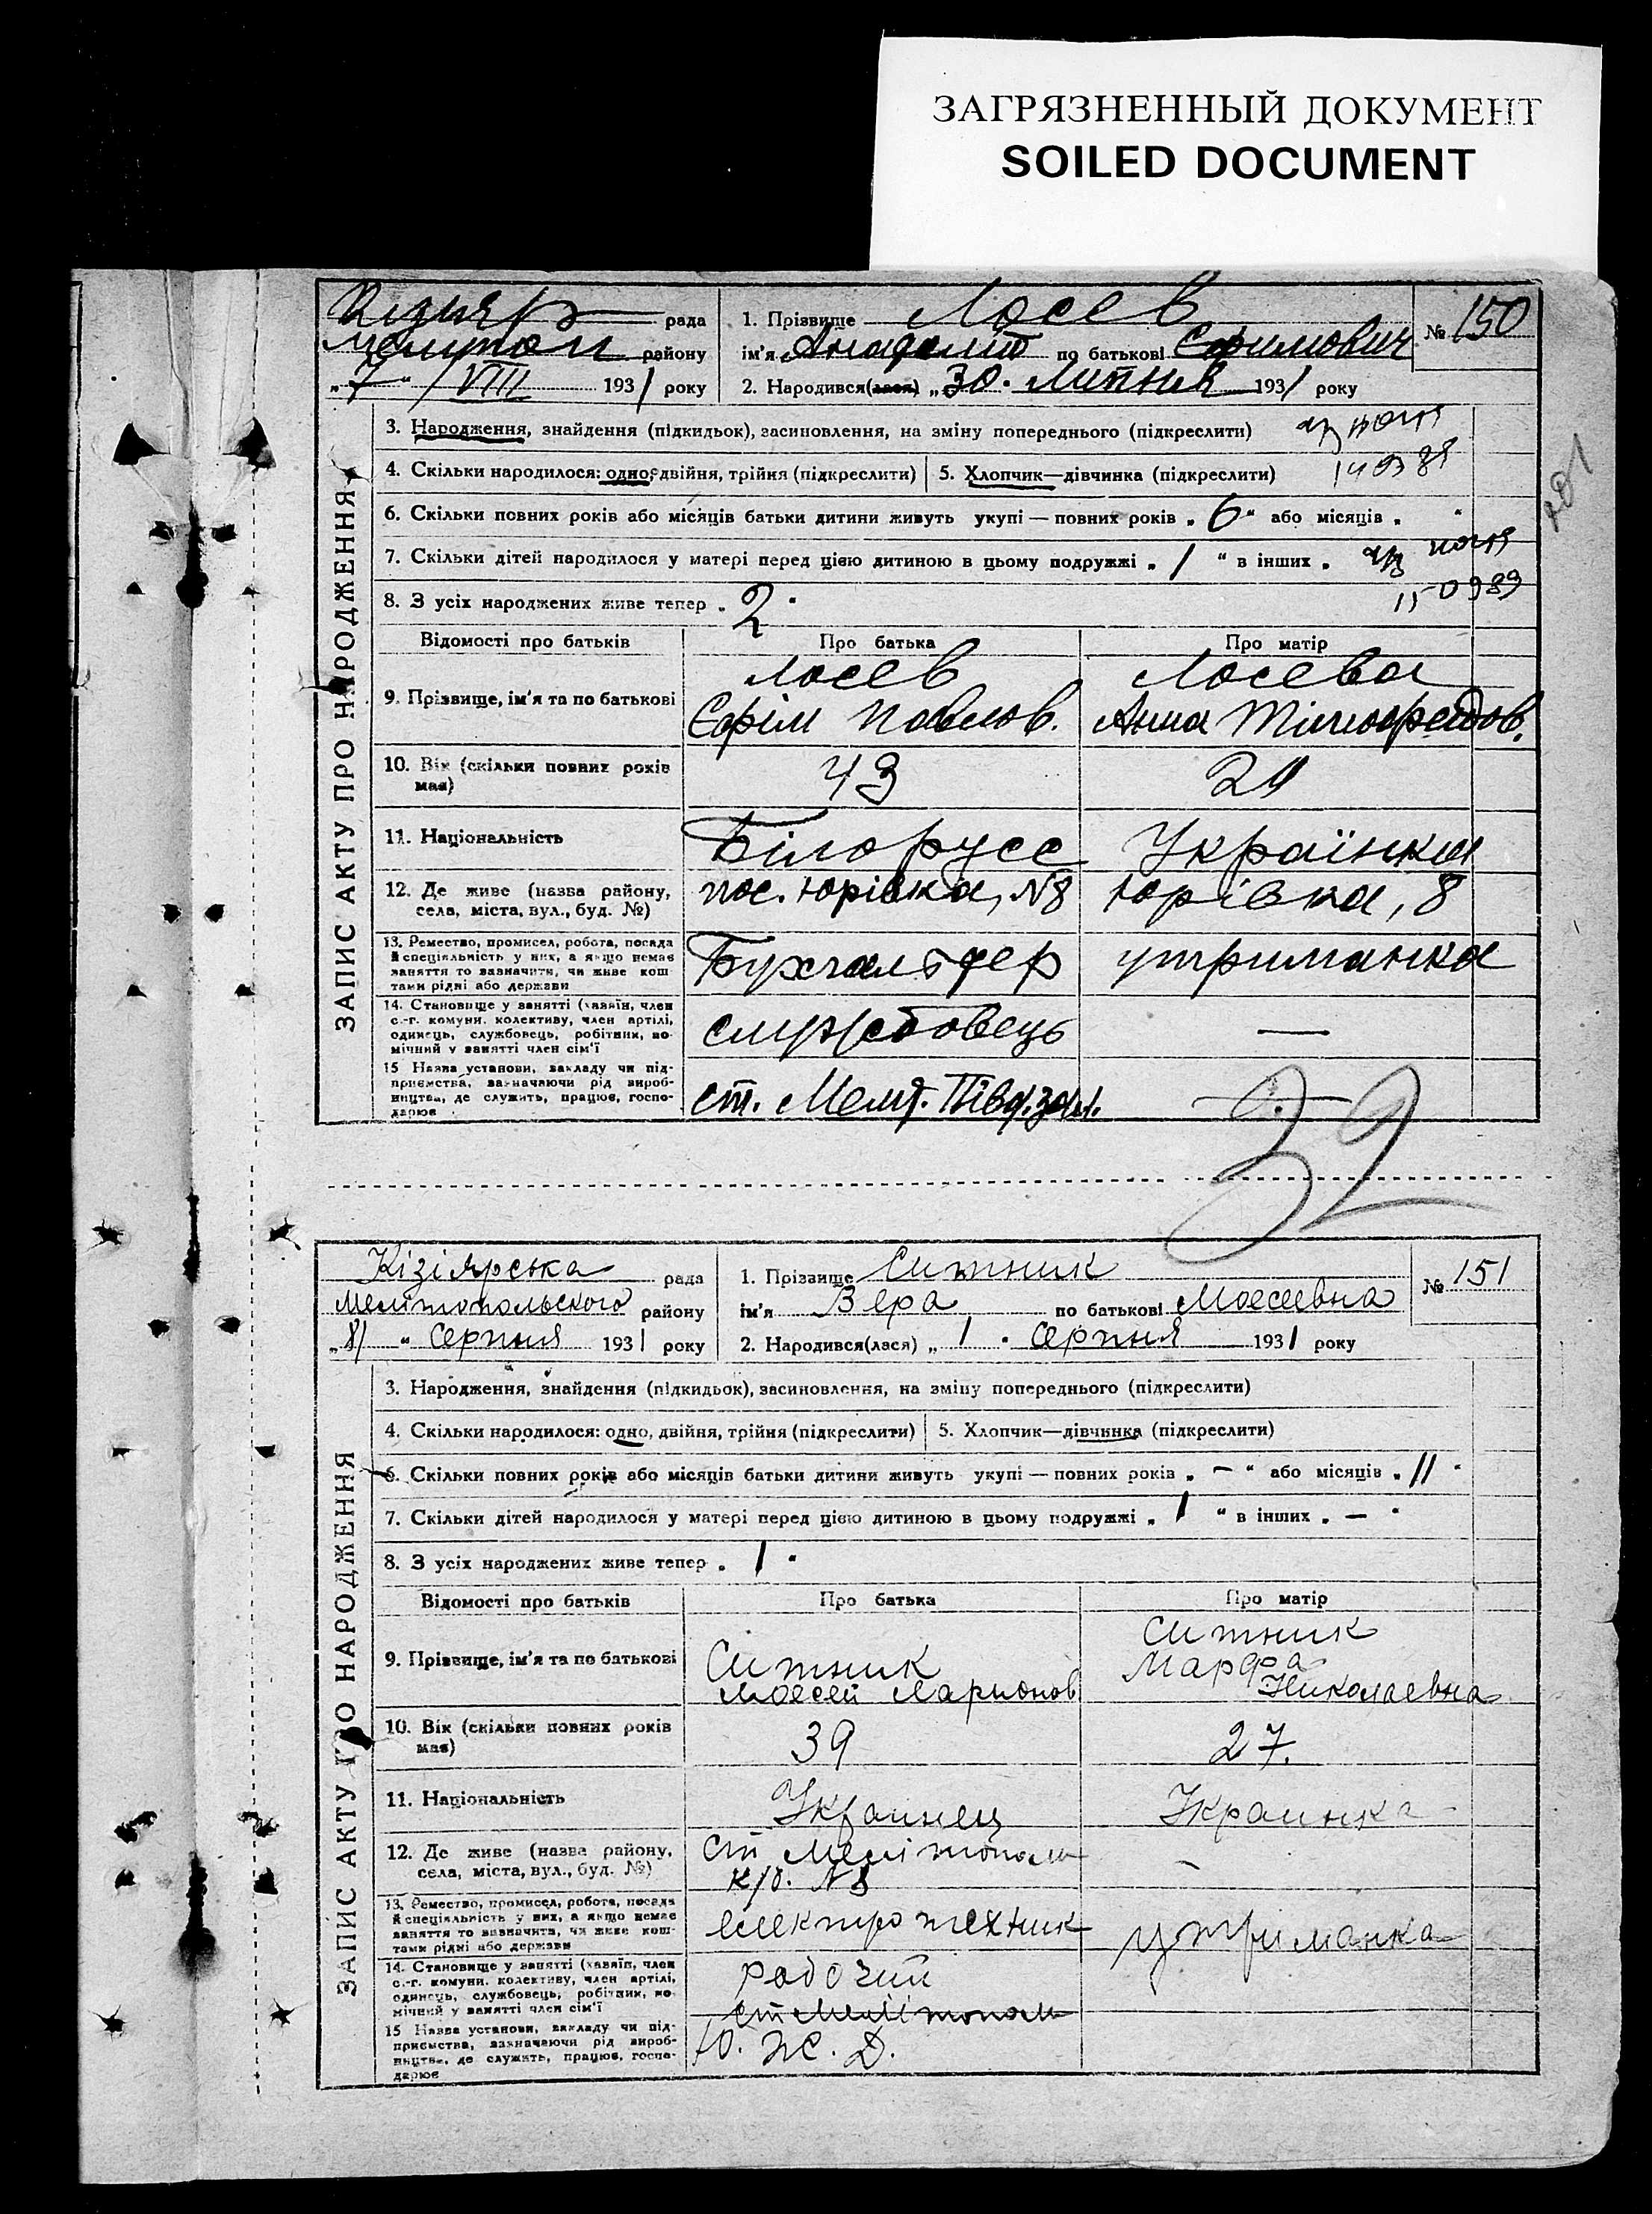 ЗАГРЯЗНЕННЫЙ ДОКУМЕНТ
SOILED DOCUMENT
Кизияр рада
Мелитоп району
„7“ VIII 1931 року
1. Прізвище Лосев
ім'я Анадолит по батькові Єфимович
2. Народився(лася) „30“ Липня 1931 року
№ 150
ЗАПИС АКТУ ПРО НАРОДЖЕННЯ
3. Народження, знайдення (підкидьок), засиновлення, на зміну попереднього (підкреслити)
4. Скільки народилося: одно, двійня, трійня (підкреслити) 5. Хлопчик—дівчинка (підкреслити)
6. Скільки повних років або місяців батьки дитини живуть укупі — повних років „6“ або місяців „ “
7. Скільки дітей народилося у матері перед цією дитиною в цьому подружжі „1“ в інших „
8. З усіх народжених живе тепер „2“
Відомості про батьків Про батька Про матір
9. Прізвище, ім'я та по батькові
Лосев
Єфім Павлов.
Лосева
Анна Тімофейов.
10. Вік (скільки повних років має)
43
11. Національність Білорусс Українка
12. Де живе (назва району, села, міста, вул., буд. №) пос. Юрівка, N8 Юрівка, 8
13. Ремество, промисел, робота, посада й спеціяльність у них, а якщо немає заняття то зазначити, чи живе коштами рідні або держави
Бухгальтер утриманка
14. Становище у занятті (хазяїн, член с.-г. комуни, колективу, член артілі, одинець, службовець, робітник, помічний у занятті член сім'ї
службовець —
15 Назва установи, закладу чи підприємства, зазначаючи рід виробництва, де служить, працює, господарює
ст. Меліт. Півд. зал. —
32
Кізіярська рада
Мелітопольского району
„8“ Серпня 1931 року
1. Прізвище Ситник
ім'я Вера по батькові Моесеевна
2. Народився(лася) „1“ Серпня 1931 року
№ 151
ЗАПИС АКТУ ПРО НАРОДЖЕННЯ
3. Народження, знайдення (підкидьок), засиновлення, на зміну попереднього (підкреслити)
4. Скільки народилося: одно, двійня, трійня (підкреслити) 5. Хлопчик—дівчинка (підкреслити)
6. Скільки повних років або місяців батьки дитини живуть укупі — повних років „—“ або місяців „11“
7. Скільки дітей народилося у матері перед цією дитиною в цьому подружжі „1“ в інших „—“
8. З усіх народжених живе тепер „1“
Відомості про батьків Про батька Про матір
9. Прізвище, ім'я та по батькові
Ситник
Моесей Ларионов
Ситник
Марфа
Николаевна
10. Вік (скільки повних років має)
39 27.
11. Національність Украинец Украинка
12. Де живе (назва району, села, міста, вул., буд. №)
Ст Мелітополь
к/б. N 8
—
13. Ремество, промисел, робота, посада й спеціяльність у них, а якщо немає заняття то зазначити, чи живе коштами рідні або держави
електротехник утриманка
14. Становище у занятті (хазяїн, член с.-г. комуни, колективу, член артілі, одинець, службовець, робітник, помічний у занятті член сім'ї
рабочий
ст Мелітополь
15 Назва установи, закладу чи підприємства, зазначаючи рід виробництва, де служить, працює, господарює
Ю. Ж. Д.